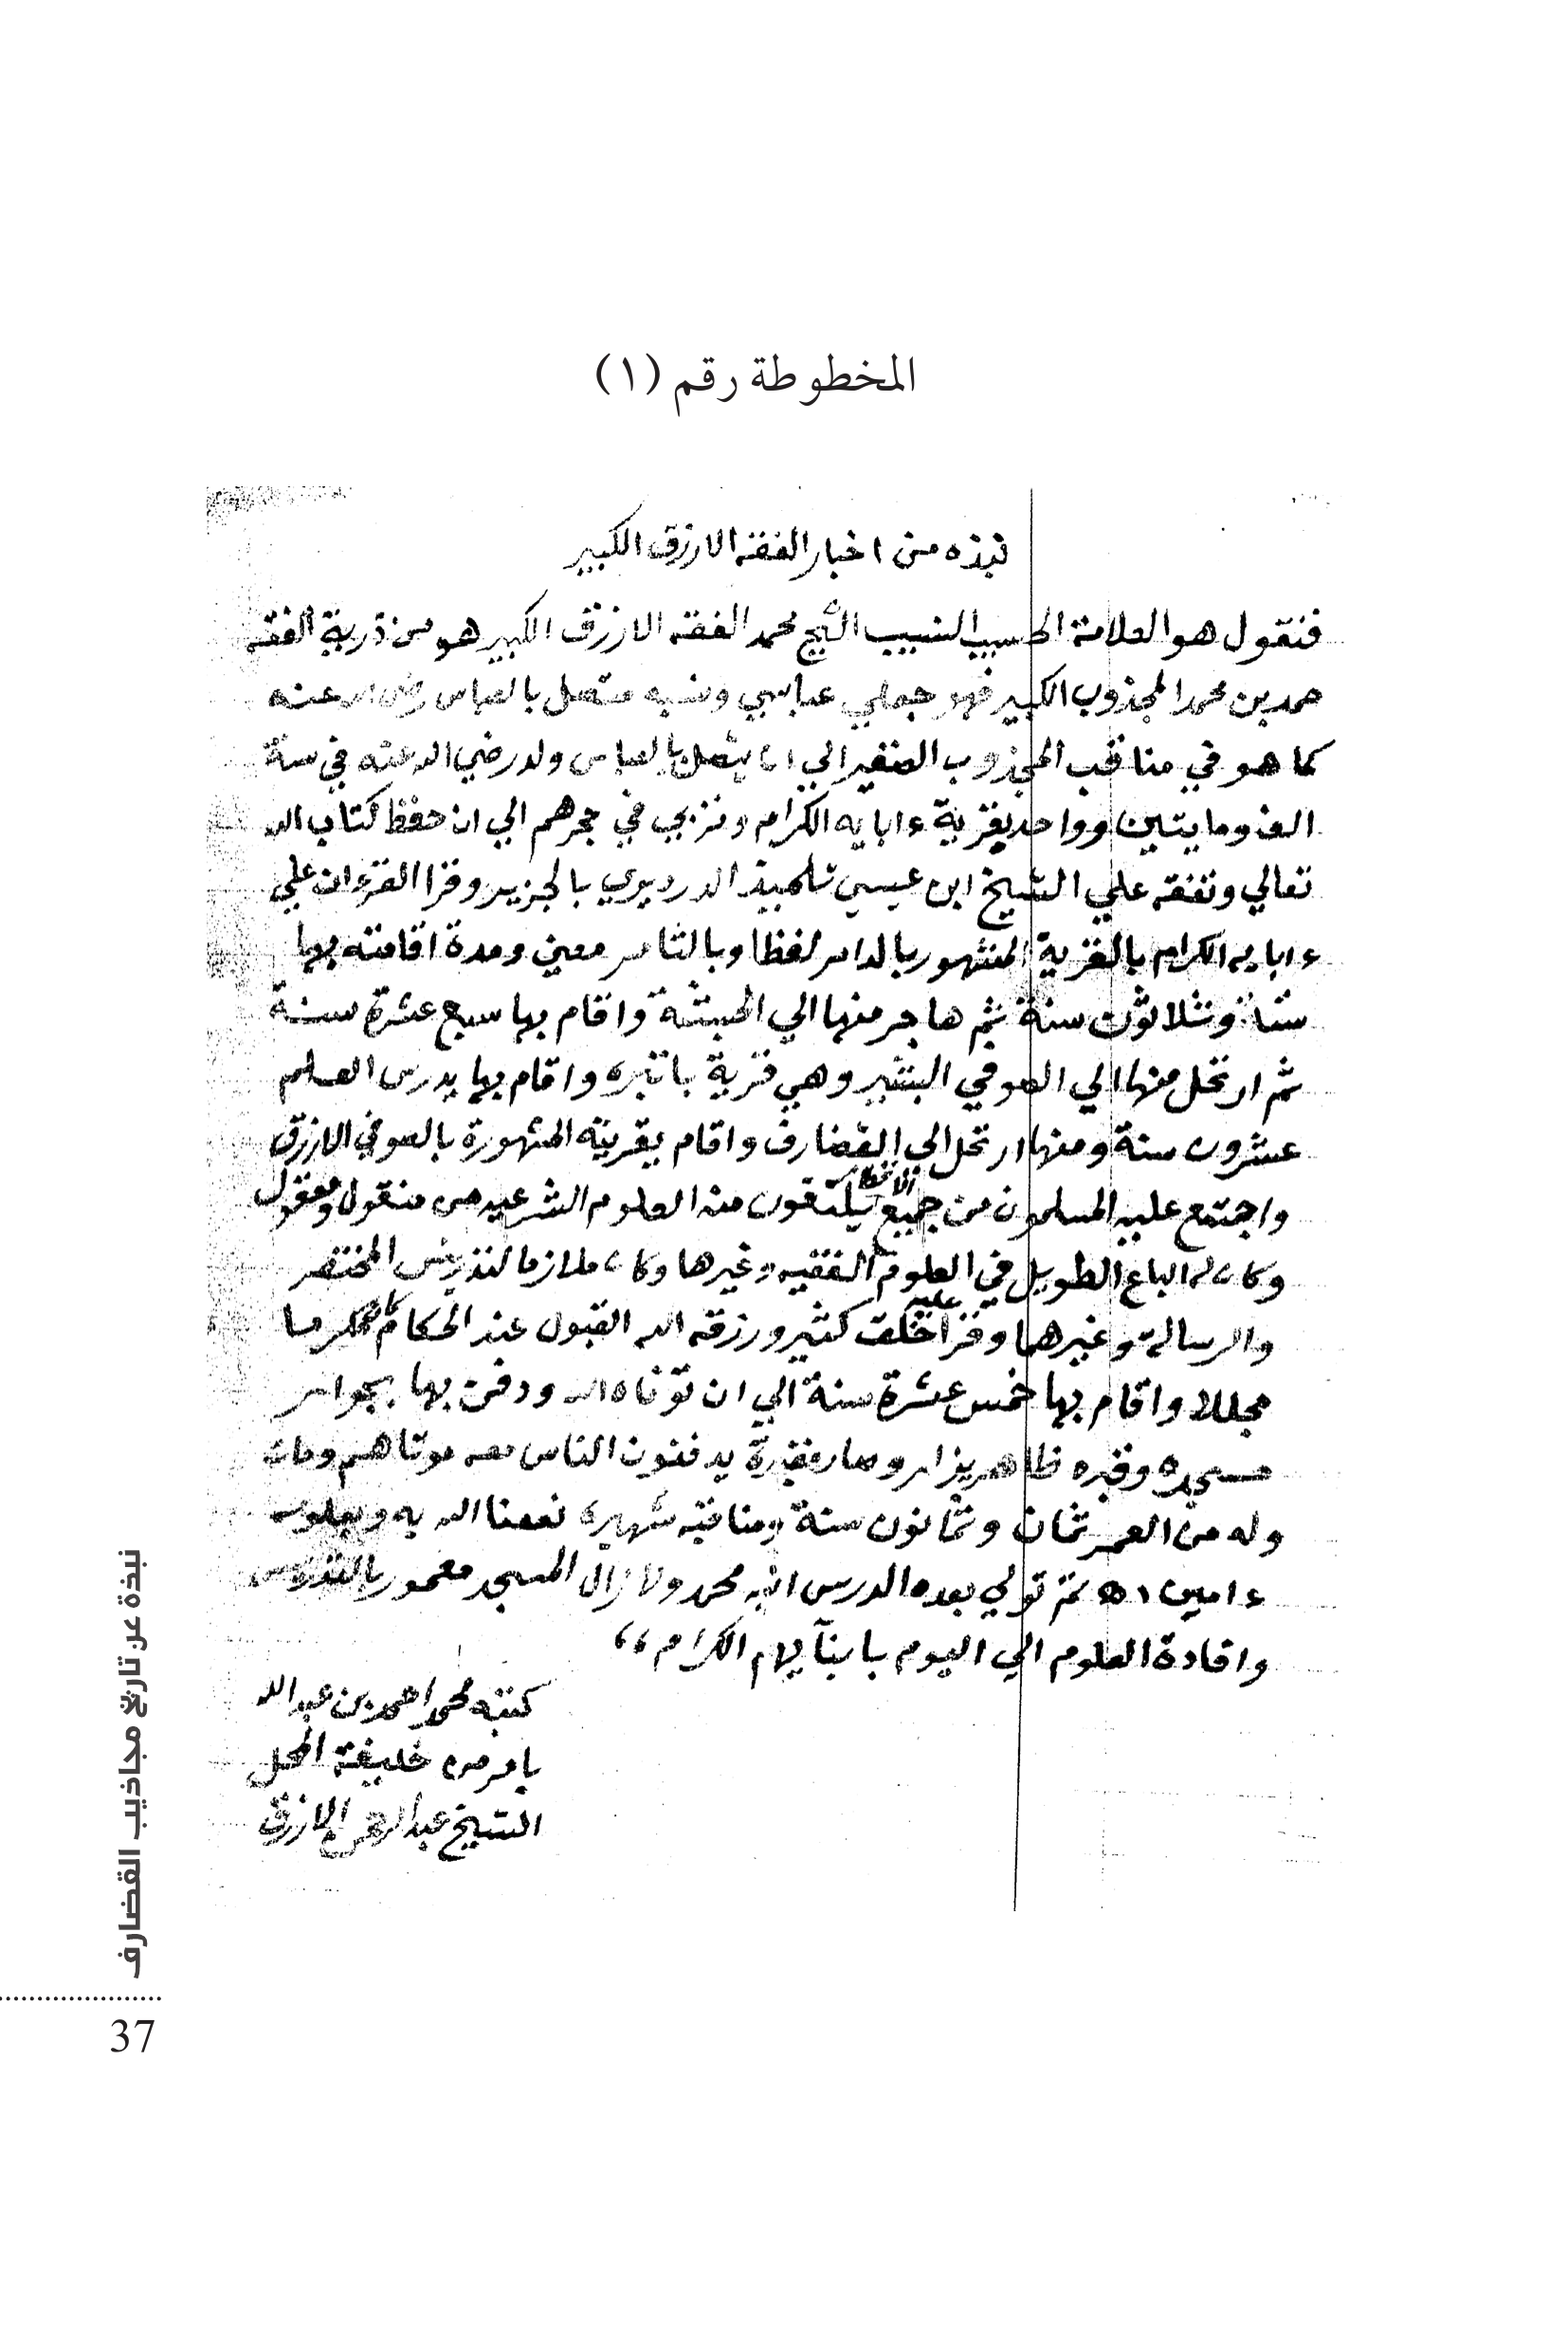 المخطوطة رقم (١)
نبذه من اخبار الفقه الازرق الكبير
فنقول هو العلامة الحسيب النسيب الشيخ محمد الفقه الازرق الكبير هو من ذرية الفقه
حمد بن محمد المجذوب الكبير فهو جعلي عباسي ونسبه متصل بالعباس رضي الله عنه
كما هو في مناقب المجذوب الصغير الي ان يتصل بالعباس ولد رضي الله عنه في سنة
الف ومايتين وواحد بقرية ءابايه الكرام وتربي في حجرهم الي ان حفظ كتاب الله
تعالي وتفقه علي الشيخ ابن عيسي تلميذ الدرديري بالجزير وقرا القرءان علي
ءابايه الكرام بالقرية المشهور بالدامر لفظا وبالثامر معني ومدة اقامته بها
ستة وثلاثون سنة ثم هاجر منها الي الحبشة واقام بها سبع عشرة سنة
ثم ارتحل منها الي الصوفي البشير وهي قرية باتبره واقام بها يدرس العلم
عشرون سنة ومنها ارتحل الي القضارف واقام بقريته المشهورة بالصوفي الازرق
واجتمع عليه المسلمون من جميع الاقطار يلتقون منه العلوم الشرعيه من منقول ومعقول
وكان له الباع الطويل في العلوم الفقيه وغيرها وكان ملازما لتدريس المختصر
والرسالة وغيرهما وقرا عليه خلق كثير ورزقه الله القبول عند الحكام كان مكرما
مجللا واقام بها خمس عشرة سنة الي ان توفاه الله ودفن بها بجوار
مسجده وقبره ظاهر يزار وصار مقبرة يدفنون الناس معه موتاهم ومات
وله من العمر ثمان وثمانون سنة ومناقبه شهيره نفعنا الله به وبعلومه
ءامين اه ثم تولي بعده الدرس ابنه محمد ولا زال المسجد معمور بالتدريس
وافادة العلوم الي اليوم بابنآيهم الكرام ،،
كتبه محمد احمد بن عبد الله
بامر من خليفة المحل
الشيخ عبد الرحمن الازرق
نبذة عن تاريخ مجاذيب القضارف
37